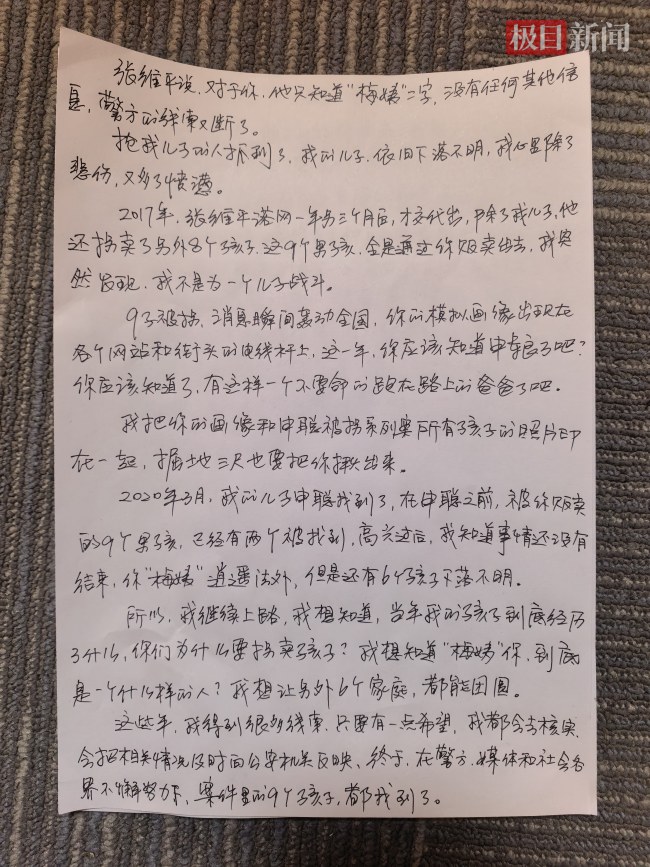 极目新闻
张维平说,对于你,他只知道“梅姨”二字,没有任何其他信
息,警方的线索又断了。
抢我儿子的人抓到了,我的儿子,依旧下落不明,我心里除了
悲伤,又多了愤懑。
2017年,张维平落网一年另三个月后,才交代出,除了我儿子,他
还拐卖了另外8个孩子,这9个男孩,全是通过你贩卖出去,我突
然发现,我不是为一个儿子战斗。
9子被拐,消息瞬间轰动全国,你的模拟画像出现在
各个网站和街头的电线杆上,这一年,你应该知道申聪了吧?
你应该知道了,有这样一个不要命的跑在路上的爸爸了吧。
我把你的画像和申聪被拐系列案所有孩子的照片印
在一起,掘地三尺也要把你揪出来。
2020年3月,我的儿子申聪找到了,在申聪之前,被你贩卖
的9个男孩,已经有两个被找到,高兴过后,我知道事情还没有
结束,你“梅姨”逍遥法外,但是还有6个孩子下落不明。
所以,我继续上路,我想知道,当年我的孩子到底经历
了什么,你们为什么要拐卖孩子?我想知道“梅姨”你,到底
是一个什么样的人?我想让另外6个家庭,都能团圆。
这些年,我得到很多线索,只要有一点希望,我都会去核实,
会把相关情况及时向公安机关反映,终于,在警方、媒体和社会各
界不懈努力下,案件里的9个孩子,都找到了。